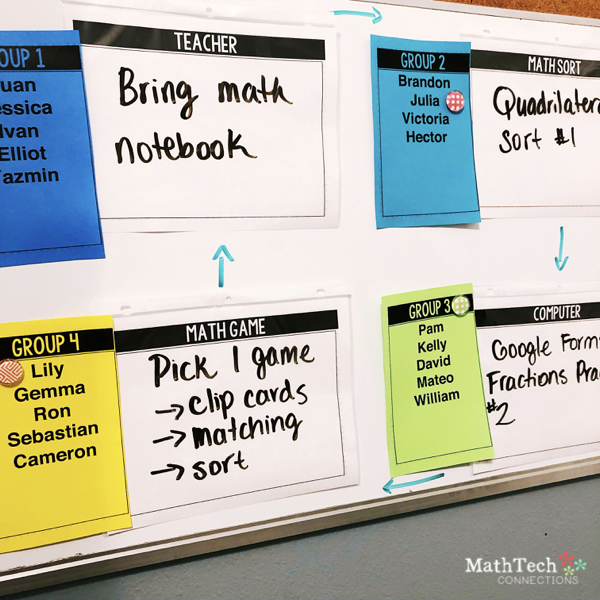 OUP 1
uan
essica
Ivan
Elliot
Yazmin
TEACHER
Bring math
notebook
GROUP 2
Brandon
Julia
Victoria
Hector
MATH SORT
Quadrilatera
Sort #1
GROUP 4
Lily
Gemma
Ron
Sebastian
Cameron
MATH GAME
Pick 1 game
→ clip cards
→ matching
→ sort
GROUP 3
Pam
Kelly
David
Mateo
William
COMPUTER
Google Form
Fractions Pra
#2
MathTech
CONNECTIONS